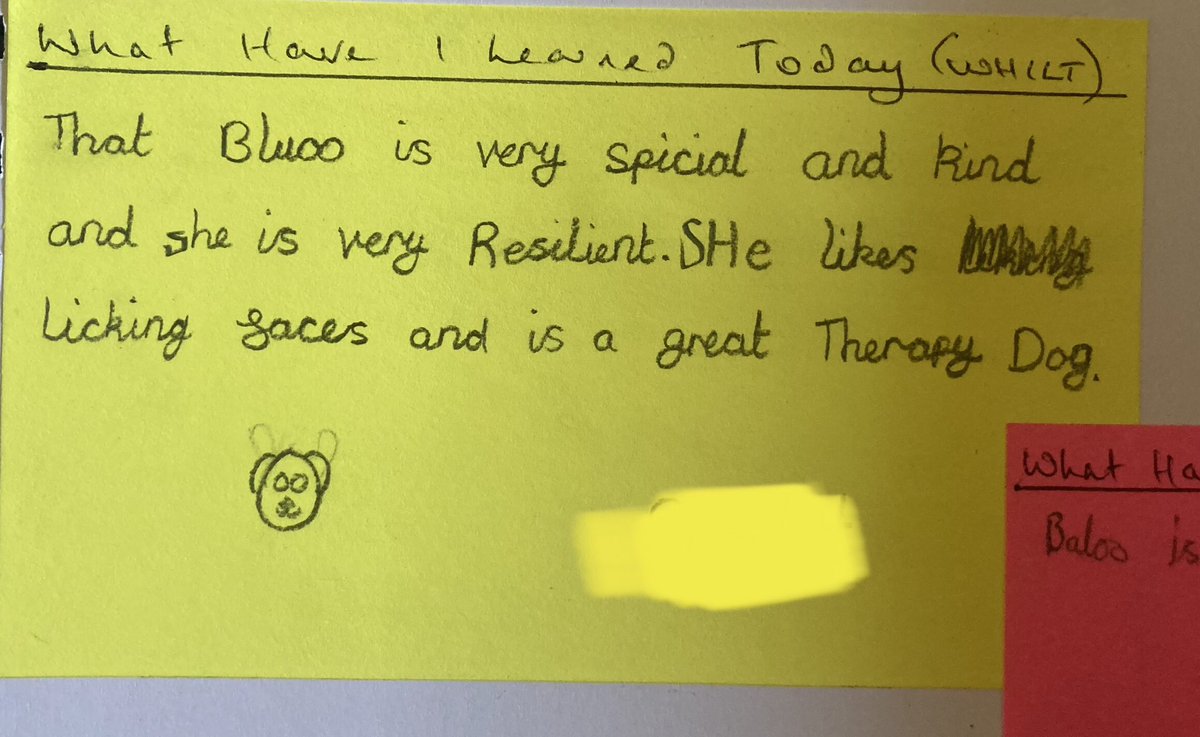 What Have I Learned Today (WHILT)
That Bluoo is very spicial and kind
and she is very Resilient. SHe likes
Licking faces and is a great Therapy Dog.
What Ha
Baloo is